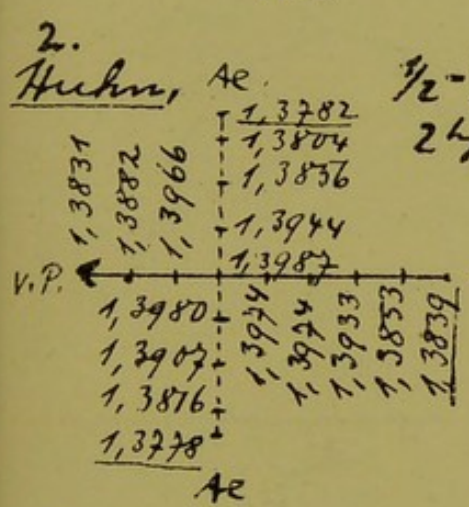 2.
Huhn, Ae.
1,3782
1,3804
1,3856
1,3944
1,3987
1,3831
1,3882
1,3966
v.P.
1,3980
1,3907
1,3816
1,3778
1,3974
1,3974
1,3933
1,3853
1,3839
Ae
1/2-